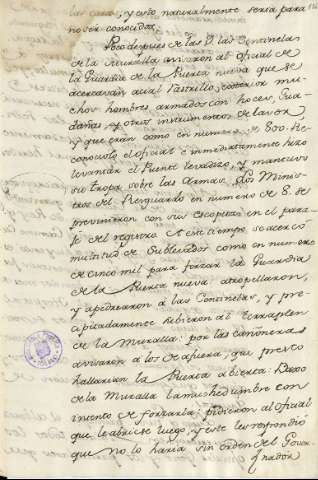 las caras, y esto naturalmente seria para
no ser conocidos.
Poco despues de las 9. las Centinelas
de la Muralla avisaron al oficial de
la Guardia de la Puerta nueva que se
acercavan a cual Rastrillo, exterior mu-
chos hombres armados con hoces, Gua-
dañas, y otros instrumentos de lavor
y que eran como en numero de 500. Re-
conociolo el oficial e inmediatamente hizo
levantar el Puente levadizo, y mantuvo
su tropa sobre las Armas. Los Minis-
tros del Resguardo en numero de 8. se
previnieron con sus escopetas en el para-
je del registro. A este tiempo se acercó
multitud de Sublevados como en numero
de cinco mil para forzar la Guardia
de la Puerta nueva: atropellaron,
y apedrearon a las Centinelas, y pre-
cipitadamente subieron al terraplen
de la Muralla: por las cañoneras
avisaron a los de afuera, que presto
hallarian la Puerta abierta. Baxo
de la Muralla la muchedumbre con
intento de forzarla: pidieron al oficial
que la abriese luego, y este les respondió
que no lo haria sin orden del Gover-
nador